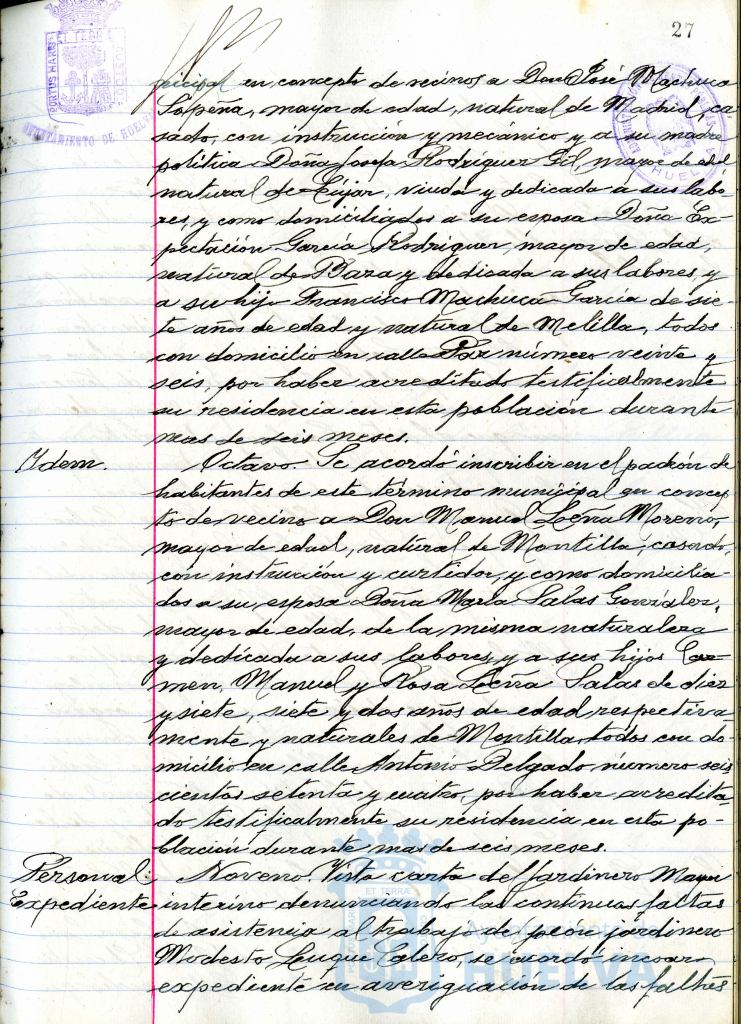 27
PORTUS MARIS ET TERRÆ CUSTODIA
AYUNTAMIENTO DE HUELVA
HUELVA
nicipal en concepto de vecinos a Don José Machuca
Lapeña, mayor de edad, natural de Madrid, ca-
sado, con instrucción y mecánico y a su madre
política Doña Josefa Rodríguez Gil, mayor de edad
natural de Cújar, viuda y dedicada a sus labo-
res, y como domiciliados a su esposa Doña Ex-
pectación García Rodríguez, mayor de edad,
natural de Baza y dedicada a sus labores, y
a su hijo Francisco Machuca García de sie-
te años de edad y natural de Melilla, todos
con domicilio en calle Paz número veinte y
seis, por haber acreditado testificalmente
su residencia en esta población durante
mas de seis meses.
Ydem.
Octavo. Se acordó inscribir en el padrón de
habitantes de este término municipal en concep-
to de vecino a Don Manuel Leña Moreno,
mayor de edad, natural de Montilla, casado,
con instrucción y curtidor, y como domicilia-
dos a su esposa Doña María Salas González,
mayor de edad, de la misma naturaleza
y dedicada a sus labores, y a sus hijos Car-
men, Manuel y Rosa Leña Salas de diez
y siete, siete y dos años de edad respectiva-
mente y naturales de Montilla, todos con do-
micilio en calle Antonio Delgado número seis-
cientos setenta y cuatro, por haber acredita-
do testificalmente su residencia en esta po-
blación durante mas de seis meses.
Personal:
Expediente
Noveno. Vista carta del Jardinero Mayor
interino denunciando las continuas faltas
de asistencia al trabajo del peón jardinero
Modesto Luque Calero, se acordó incoar
expediente en averiguación de las faltas
ET TERRÆ
Ayuntamiento de
HUELVA